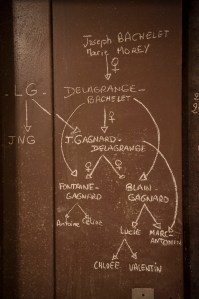 Joseph BACHELET
Marie MOREY
♀
DELAGRANGE-
BACHELET
-LG-
JNG
J.GAGNARD-
DELAGRANGE
♀ ♀
FONTAINE-
GAGNARD
BLAIN-
GAGNARD
Antoine Céline
Lucie MARC-
ANTONIN
CHLOÉE VALENTIN